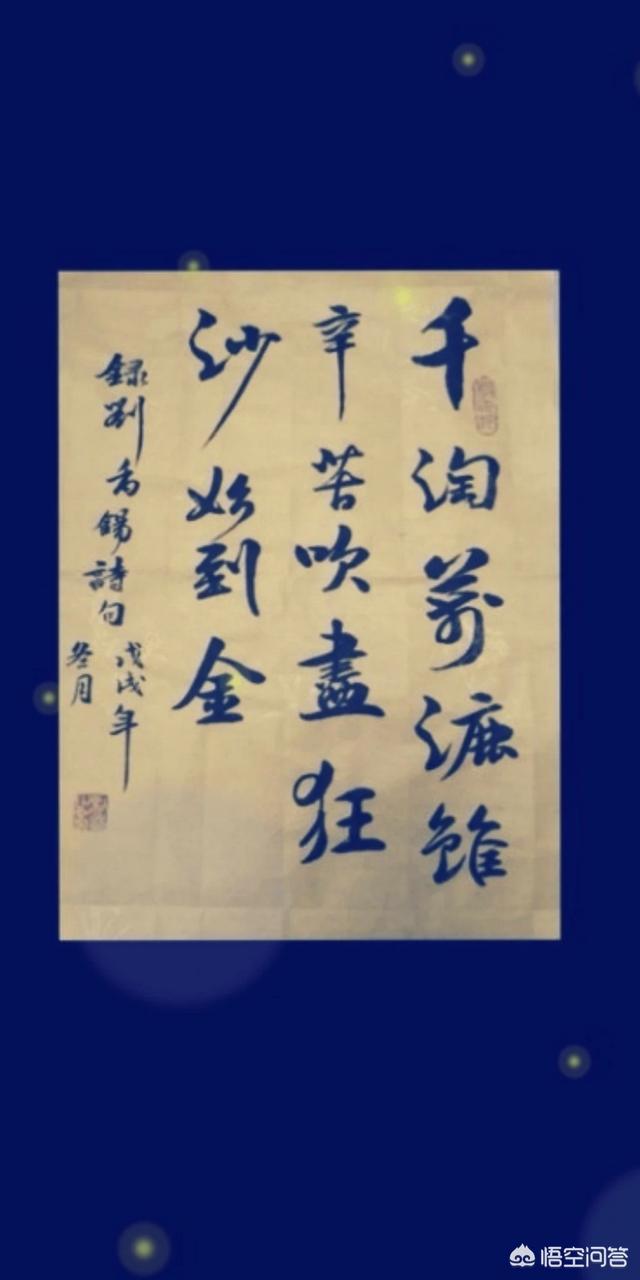 千淘萬漉雖
辛苦吹盡狂
沙始到金
錄劉禹錫詩句 戊戌年
冬月
悟空问答